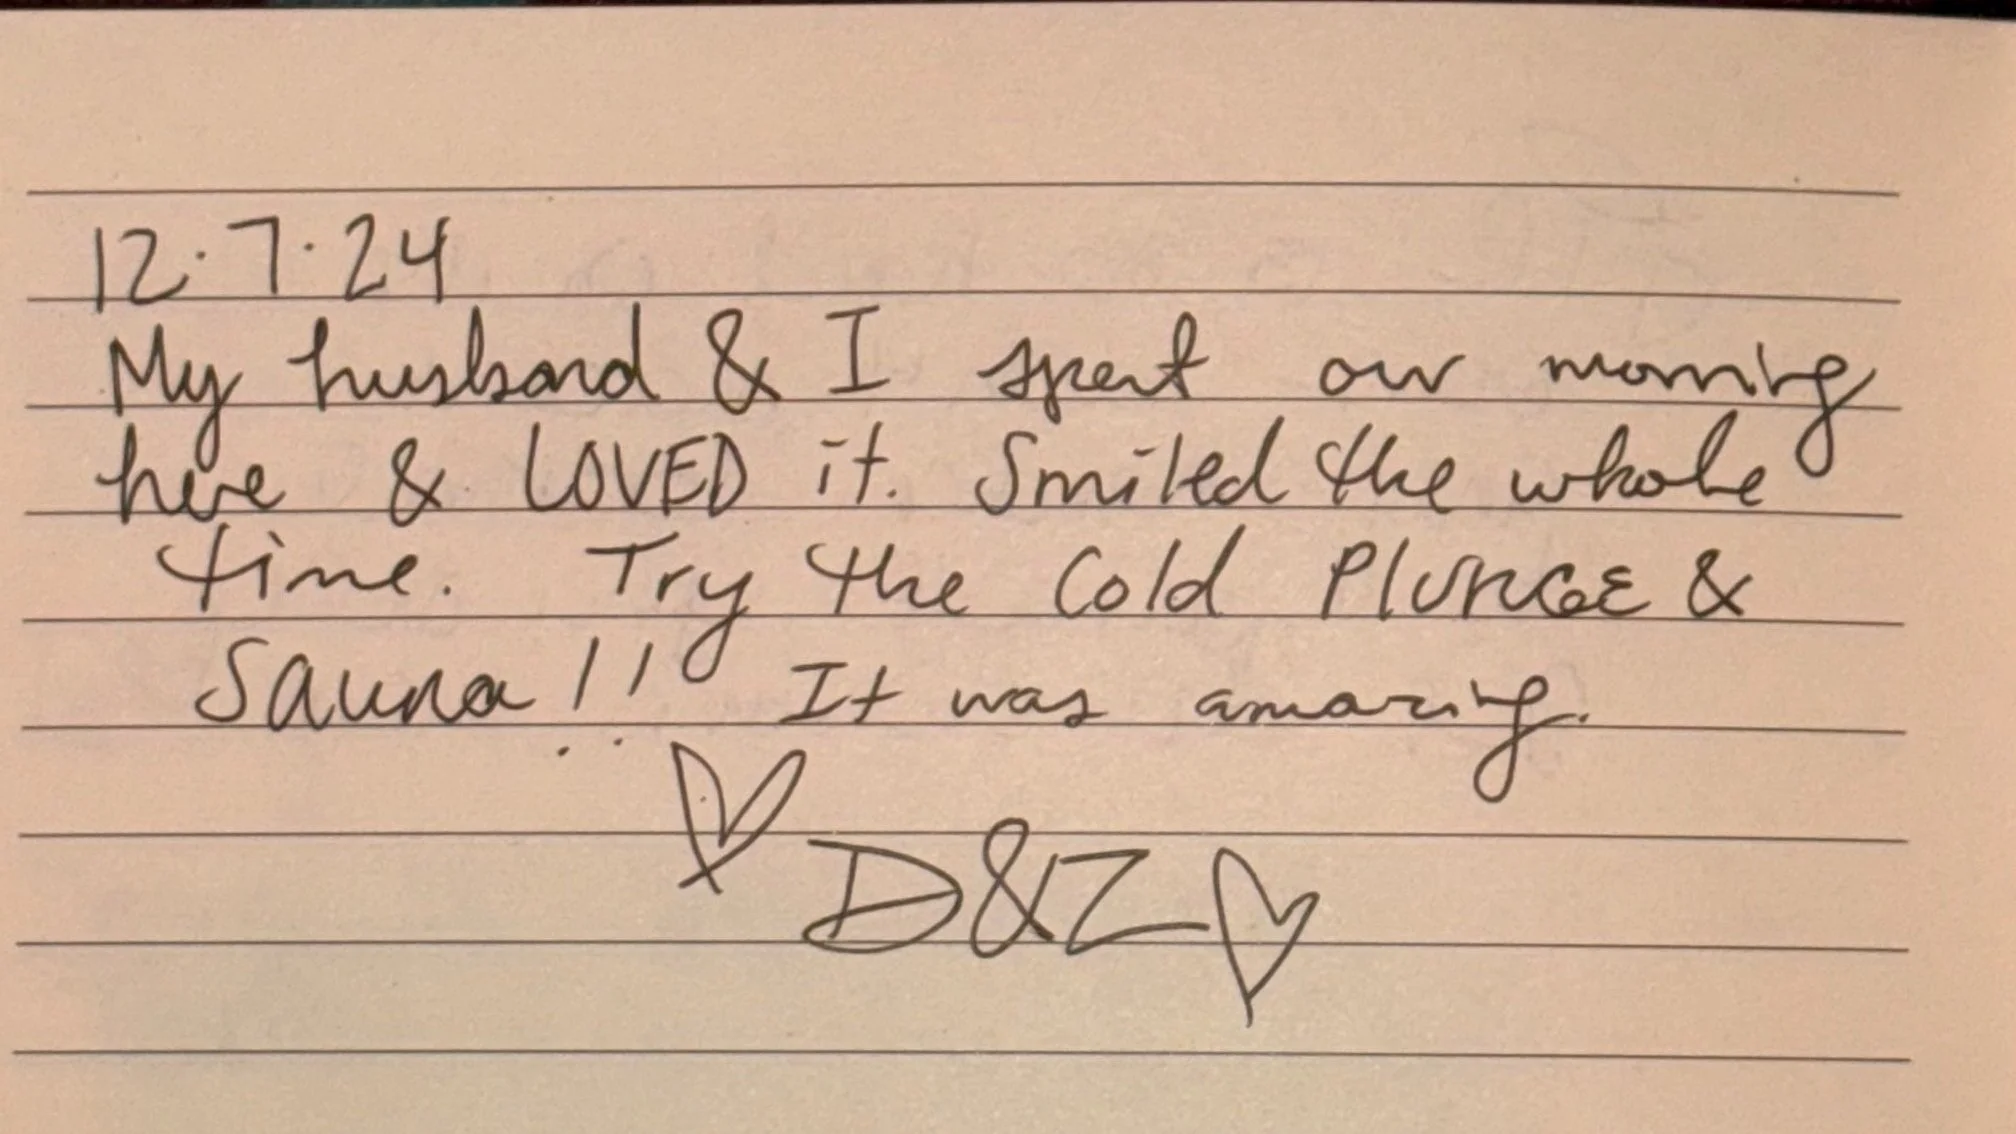 12.7.24
My husband & I spent our morning
here & LOVED it. Smiled the whole
time. Try the Cold PlUNGE &
Sauna!! It was amazing.
D&Z